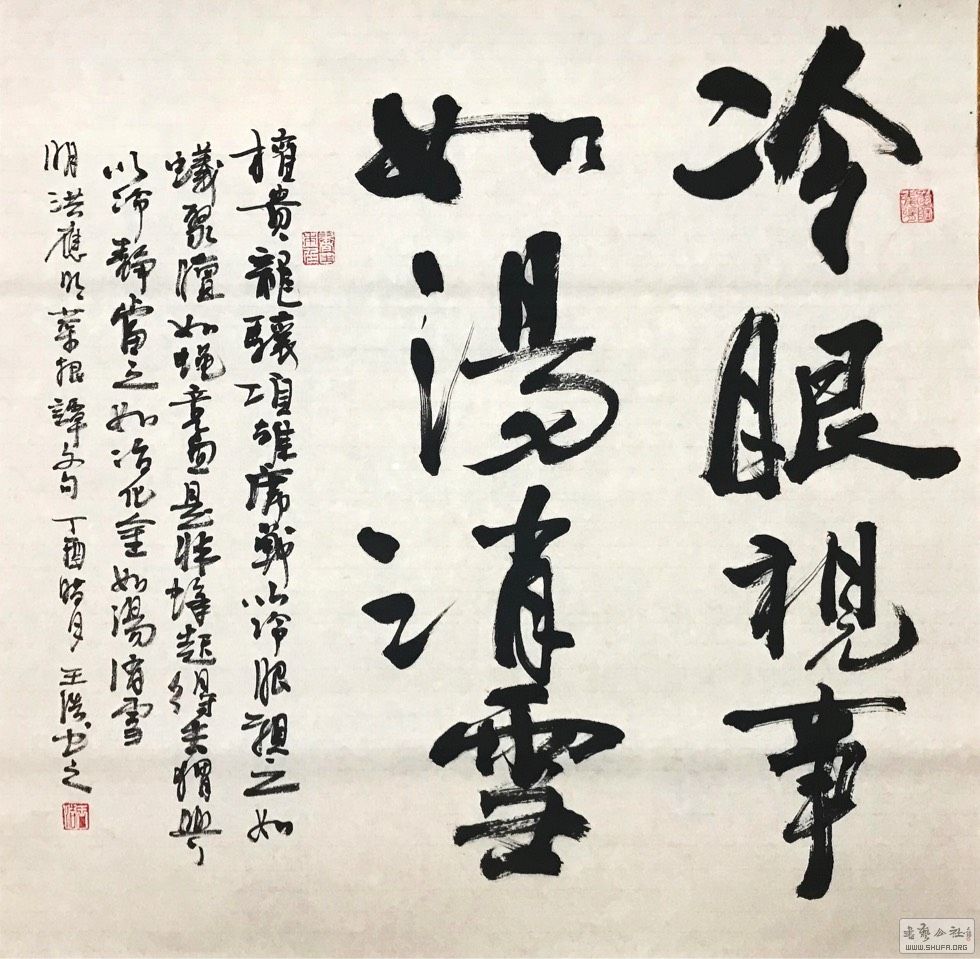 冷眼視事
如湯消雪
權貴龍驤雄虎戰以冷眼之如
蟻聚膻如蠅竟血是非蜂起得失猬興
以冷靜當之如冶化金如湯消雪
明洪應明菜根譚文句 丁酉腊月 王書之
WWW.SHUFA.ORG